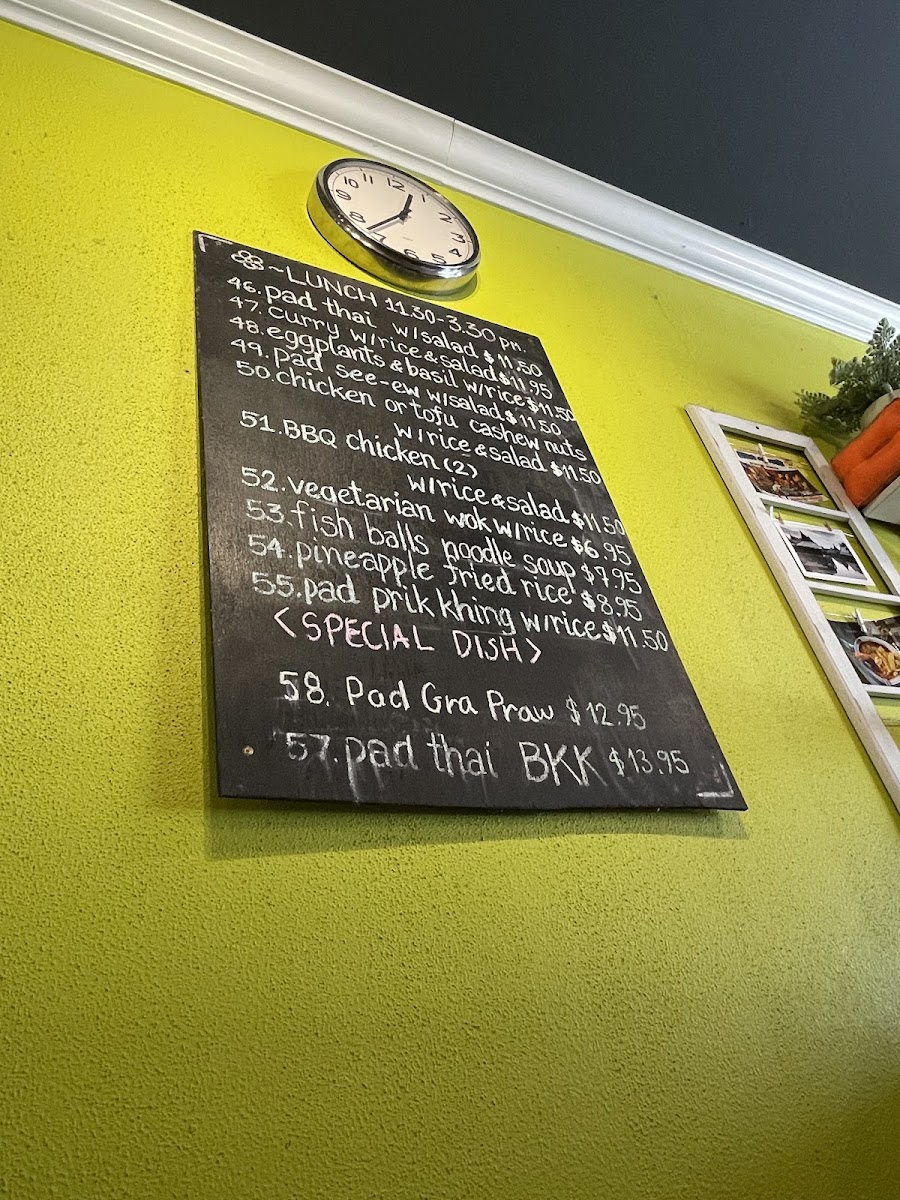 ~LUNCH 11.30-3.30 PM.
46. pad thai w/salad $11.50
47. curry w/rice & salad $11.95
48. eggplants & basil w/rice $11.50
49. pad see-ew w/salad $11.50
50. chicken or tofu cashew nuts
w/rice & salad $11.50
51. BBQ chicken (2)
w/rice & salad $11.50
52. vegetarian wok w/rice $6.95
53. fish balls noodle soup $7.95
54. pineapple fried rice $8.95
55. pad prik khing w/rice $11.50
<SPECIAL DISH>
58. Pad Gra Praw $12.95
57. pad thai BKK $13.95
12
1
2
3
4
5
6
7
8
9
10
11